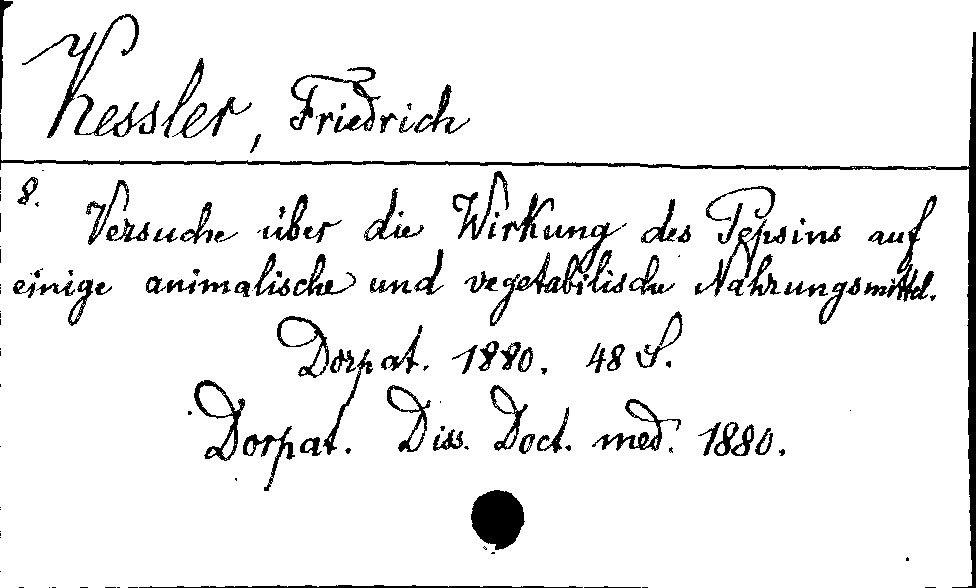 Kessler, Friedrich
8.
Versuche über die Wirkung des Pepsins auf
einige animalische und vegetabilische Nahrungsmittel.
Dorpat. 1880. 48 S.
Dorpat. Diss. Doct. med. 1880.